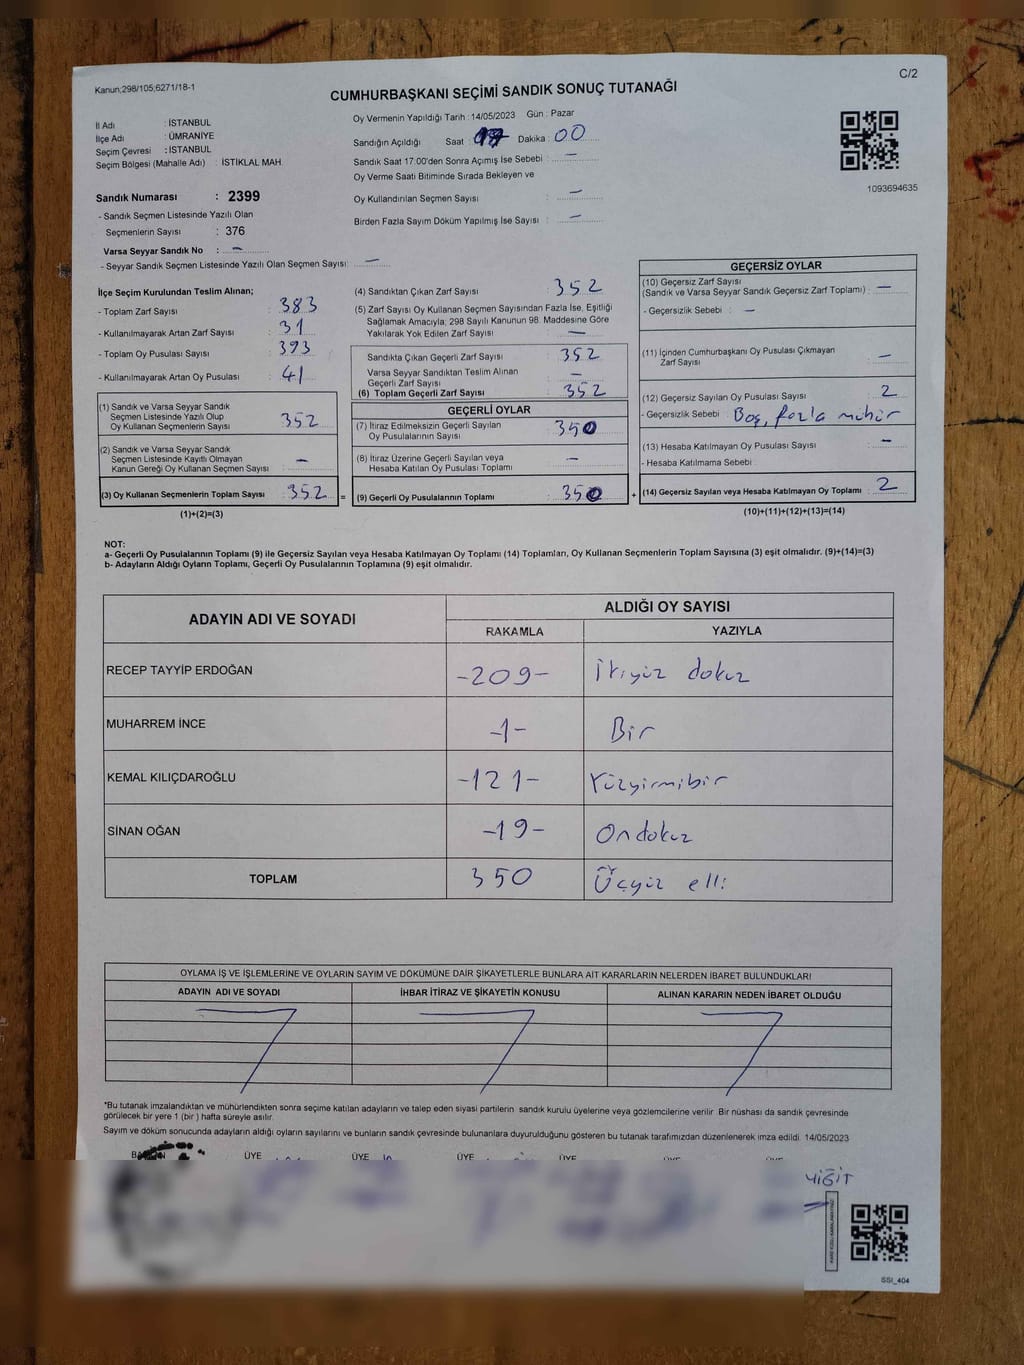 C/2
Kanun;298/105;6271/18-1
CUMHURBAŞKANI SEÇİMİ SANDIK SONUÇ TUTANAĞI
İl Adı : İSTANBUL
İlçe Adı : ÜMRANİYE
Seçim Çevresi : İSTANBUL
Seçim Bölgesi (Mahalle Adı) : İSTİKLAL MAH.
Sandık Numarası : 2399
- Sandık Seçmen Listesinde Yazılı Olan
Seçmenlerin Sayısı : 376
Varsa Seyyar Sandık No : -
- Seyyar Sandık Seçmen Listesinde Yazılı Olan Seçmen Sayısı: -
Oy Vermenin Yapıldığı Tarih : 14/05/2023 Gün : Pazar
Sandığın Açıldığı Saat : Dakika : 00
Sandık Saat 17.00'den Sonra Açımış İse Sebebi : -
Oy Verme Saati Bitiminde Sırada Bekleyen ve
Oy Kullandırılan Seçmen Sayısı : -
Birden Fazla Sayım Döküm Yapılmış İse Sayısı : -
1093694635
İlçe Seçim Kurulundan Teslim Alınan;
- Toplam Zarf Sayısı : 383
- Kullanılmayarak Artan Zarf Sayısı : 31
- Toplam Oy Pusulası Sayısı : 393
- Kullanılmayarak Artan Oy Pusulası : 41
(1) Sandık ve Varsa Seyyar Sandık
Seçmen Listesinde Yazılı Olup
Oy Kullanan Seçmenlerin Sayısı : 352
(2) Sandık ve Varsa Seyyar Sandık
Seçmen Listesinde Kayıtlı Olmayan
Kanun Gereği Oy Kullanan Seçmen Sayısı : -
(3) Oy Kullanan Seçmenlerin Toplam Sayısı : 352 =
(1)+(2)=(3)
(4) Sandıktan Çıkan Zarf Sayısı : 352
(5) Zarf Sayısı Oy Kullanan Seçmen Sayısından Fazla İse, Eşitliği
Sağlamak Amacıyla; 298 Sayılı Kanunun 98. Maddesine Göre
Yakılarak Yok Edilen Zarf Sayısı : -
Sandıkta Çıkan Geçerli Zarf Sayısı : 352
Varsa Seyyar Sandıktan Teslim Alınan
Geçerli Zarf Sayısı : -
(6) Toplam Geçerli Zarf Sayısı : 352
GEÇERLİ OYLAR
(7) İtiraz Edilmeksizin Geçerli Sayılan
Oy Pusulalarının Sayısı : 350
(8) İtiraz Üzerine Geçerli Sayılan veya
Hesaba Katılan Oy Pusulası Toplamı : -
(9) Geçerli Oy Pusulalarının Toplamı : 350 +
GEÇERSİZ OYLAR
(10) Geçersiz Zarf Sayısı
(Sandık ve Varsa Seyyar Sandık Geçersiz Zarf Toplamı) : -
- Geçersizlik Sebebi : -
(11) İçinden Cumhurbaşkanı Oy Pusulası Çıkmayan
Zarf Sayısı : -
(12) Geçersiz Sayılan Oy Pusulası Sayısı : 2
- Geçersizlik Sebebi : Boş, fazla mühür
(13) Hesaba Katılmayan Oy Pusulası Sayısı : -
- Hesaba Katılmama Sebebi :
(14) Geçersiz Sayılan veya Hesaba Katılmayan Oy Toplamı : 2
(10)+(11)+(12)+(13)=(14)
NOT:
a- Geçerli Oy Pusulalarının Toplamı (9) ile Geçersiz Sayılan veya Hesaba Katılmayan Oy Toplamı (14) Toplamları, Oy Kullanan Seçmenlerin Toplam Sayısına (3) eşit olmalıdır. (9)+(14)=(3)
b- Adayların Aldığı Oyların Toplamı, Geçerli Oy Pusulalarının Toplamına (9) eşit olmalıdır.
ADAYIN ADI VE SOYADI ALDIĞI OY SAYISI
RAKAMLA YAZIYLA
RECEP TAYYİP ERDOĞAN -209- İkiyüz dokuz
MUHARREM İNCE -1- Bir
KEMAL KILIÇDAROĞLU -121- Yüzyirmibir
SİNAN OĞAN -19- Ondokuz
TOPLAM 350 Üçyüz elli
OYLAMA İŞ VE İŞLEMLERİNE VE OYLARIN SAYIM VE DÖKÜMÜNE DAİR ŞİKAYETLERLE BUNLARA AİT KARARLARIN NELERDEN İBARET BULUNDUKLARI
ADAYIN ADI VE SOYADI İHBAR İTİRAZ VE ŞİKAYETİN KONUSU ALINAN KARARIN NEDEN İBARET OLDUĞU
*Bu tutanak imzalandıktan ve mühürlendikten sonra seçime katılan adayların ve talep eden siyasi partilerin sandık kurulu üyelerine veya gözlemcilerine verilir. Bir nüshası da sandık çevresinde
görülecek bir yere 1 (bir ) hafta süreyle asılır.
Sayım ve döküm sonucunda adayların aldığı oyların sayılarını ve bunların sandık çevresinde bulunanlara duyurulduğunu gösteren bu tutanak tarafımızdan düzenlenerek imza edildi. 14/05/2023
ÜYE ÜYE ÜYE ÜYE
YİĞİT
SSI_404